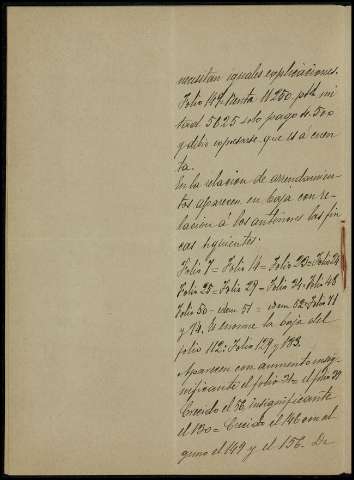 necesitan iguales esplicaciones.
Folio 149. Renta 11250 por la mi
tad 5625 solo pago de 500
y debió expresarse que es a cuen
ta.
En la relacion de arrendamien-
tos aparecen en baja con re-
lacion á los anteriores las fin
cas siguientes.
Folio 7 = Folio 14 = Folio 22 = Folio 24
Folio 25 = Folio 29 = Folio 31 = Folio 48
Folio 50 = idem 51 = idem 52 = Folio 71
y 74. Es enorme la baja del
folio 112: Folio 129 y 133.
Aparecen con aumento insig-
nificante el folio 21 = el folio 29
Crecido el 36 insignificante
el 130 = Crecido el 146 con al
guno el 149 y el 156. De